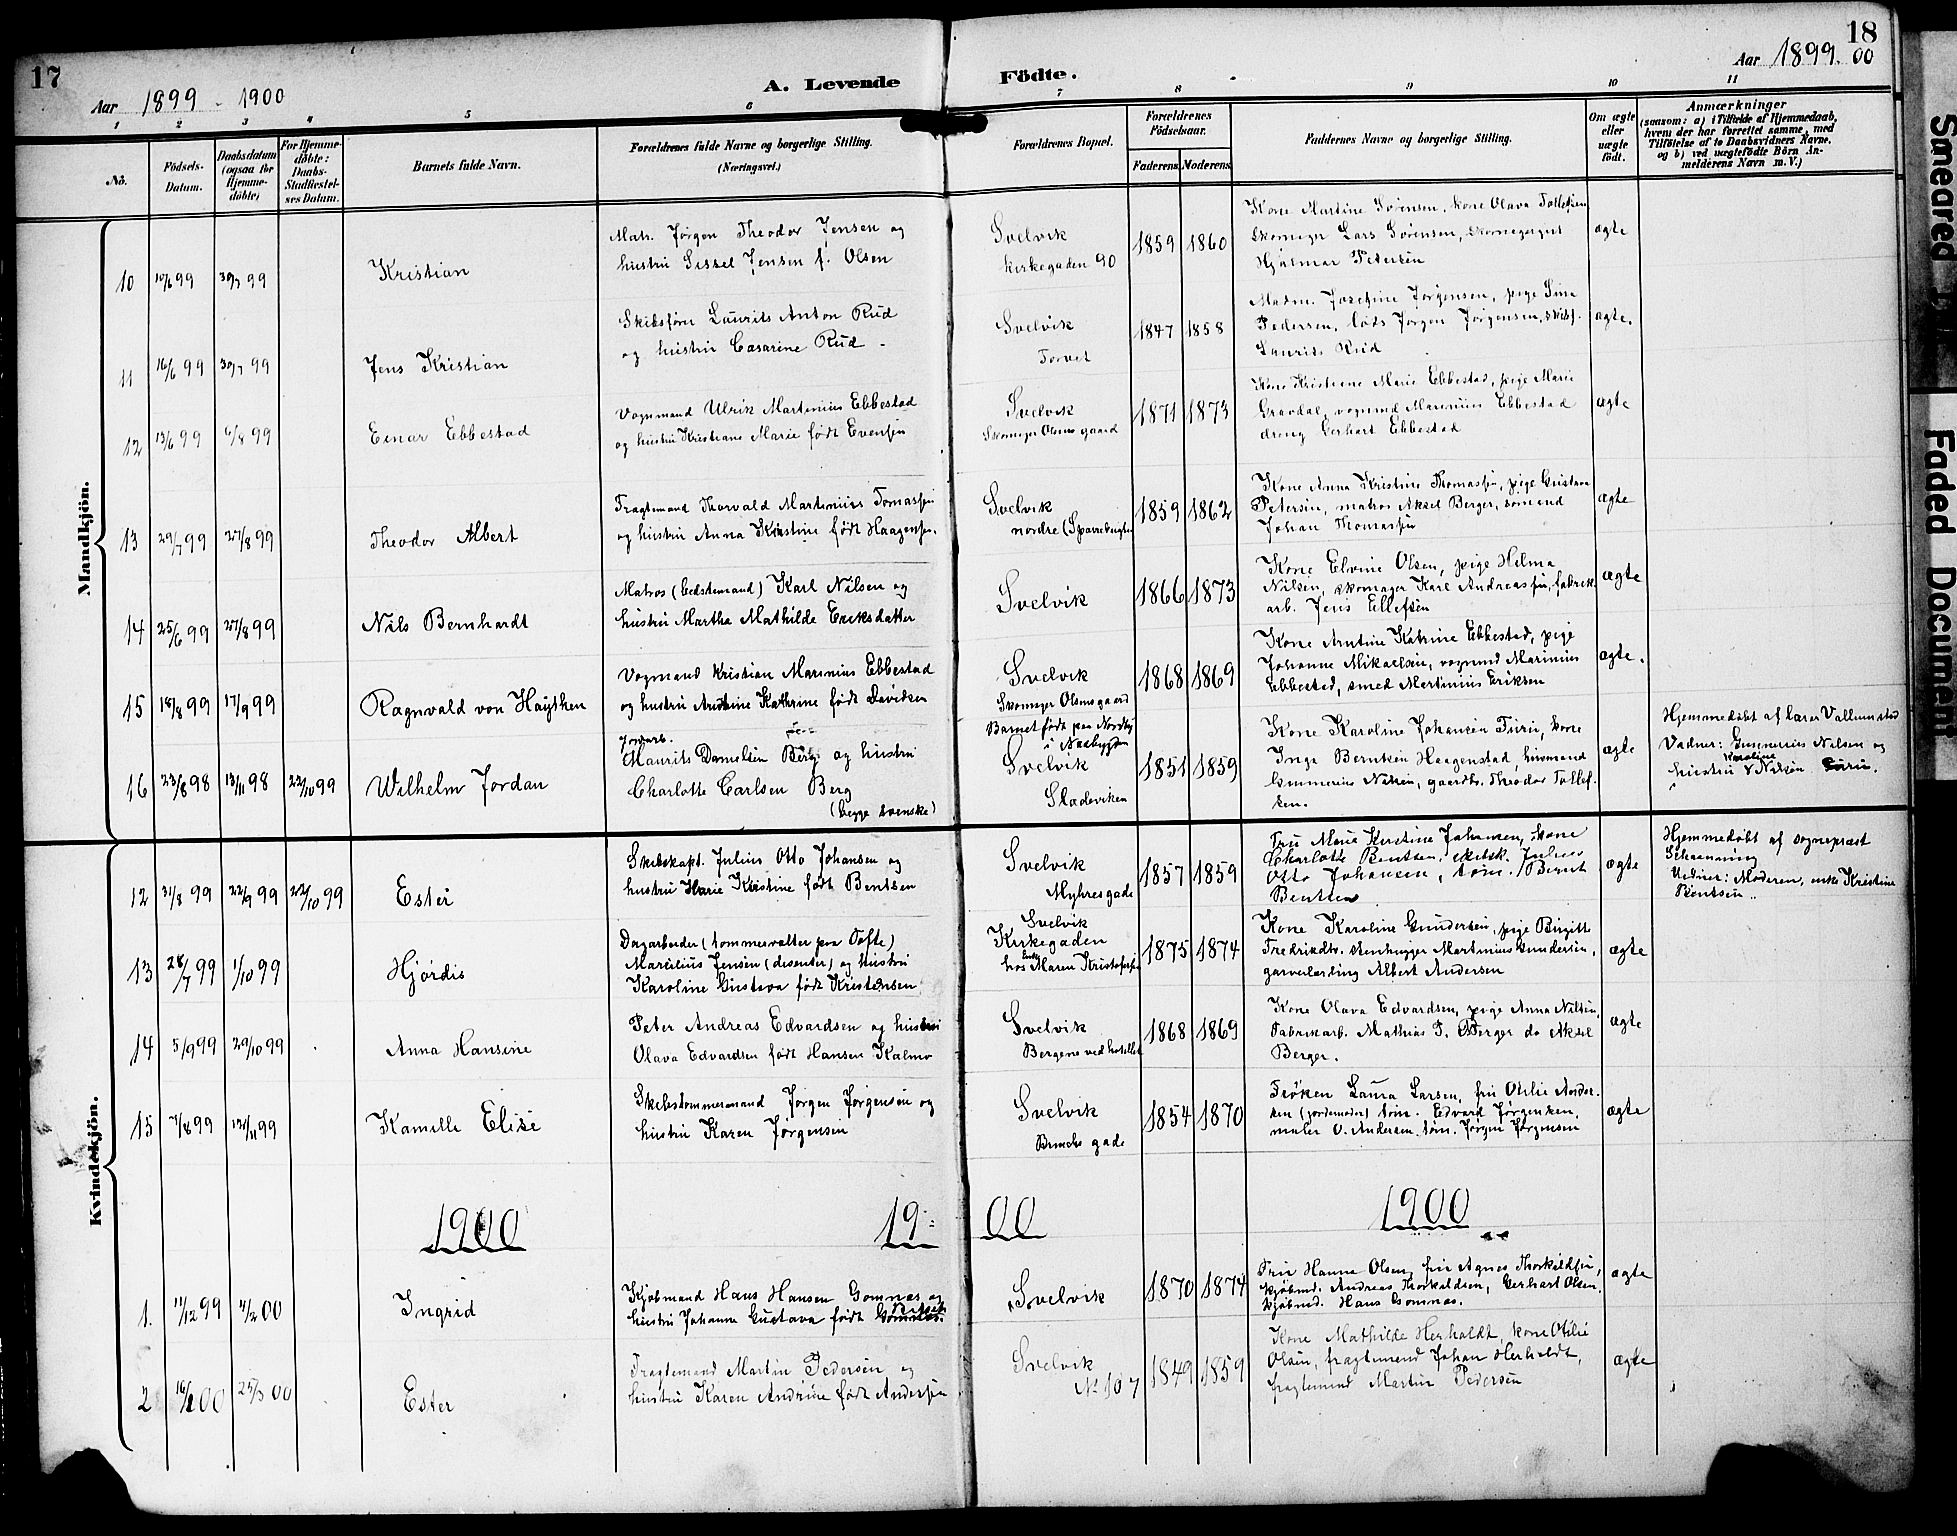 17
18
Aar 1899 - 1900
A. Levende Födte.
Aar 1899. 00
1 2 3 4 5 6 7 8 9 10 11
No.
Födsels-
Datum.
Daabsdatum
(ogsaa for
Hjemme-
döbte)
For Hjemme-
döbte:
Daabs-
Stadfæstel-
ses Datum.
Barnets fulde Navn.
Forældrenes fulde Navne og borgerlige Stilling.
(Næringsvei.)
Forældrenes Bopæl.
Forældrenes
Födselsaar.
Faderens Moderens
Faddernes Navne og borgerlige Stilling.
Om ægte
eller
uægte
födt.
Anmærkninger
(saasom: a) i Tilfælde af Hjemmedaab,
hvem der har forrettet samme, med
Tilföielse af to Daabsvidners Navne,
og b) ved uægtefödte Börn An-
melderens Navn m. V.)
Mandkjön.
10 10/6 99 30/7 99 Kristian
Matr. Jørgen Theodor Jensen og
hustru Sissel Jensen f. Olsen
Svelvik
Kirkegaden 90
1859 1860
Kone Martine Sørensen, kone Olava Tollefsen
Skomager Lars Sørensen, skomagergut
Hjalmar Pedersen
ægte
11 16/6 99 30/7 99 Jens Kristian
Skibsfører Laurits Anton Rud
og hustru Casarine Rud -
Svelvik
Torvet
1847 1858
Madm. Josefine Jørgensen, pige Sina
Pedersen, lods Jørgen Jørgensen, skibsf.
Laurits Rud
ægte.
12 13/6 99 6/8 99 Einar Ebbestad
Vognmand Ulrik Martinius Ebbestad
og hustru Kristiane Marie født Evensen
Svelvik
Skomager Olsens gaard
1871 1873
Kone Kristiene Marie Ebbestad, pige Marie
Gravdal, vognmd Marinius Ebbestad
dreng Gerhart Ebbestad
ægte
13 29/7 99 27/8 99 Theodor Albert
Fragtemand Thorvald Martinius Tomassen
og hustru Anna Kristine født Haagensen.
Svelvik
nordre (Sparrebugten
1859 1862
Kone Anna Kristine Thomassen, pige Gustava
Petersen, matros Aksel Berger, sømand
Johan Thomassen
ægte
14 25/6 99 27/8 99 Nils Bernhardt
Matros (bedstemand) Karl Nilsen og
hustru Martha Mathilde Eriksdatter
Svelvik
1866 1873
Kone Elvine Olsen, pige Helma
Nilsen, skomager Karl Andreassen, fabrik
arb. Jens Ellefsen
ægte
15 18/8 99 17/9 99 Ragnvald von Haythen
Vogmand Kristian Marinius Ebbestad
og hustru Arntine Kathrine født Davidsen
Svelvik
Skomager Olsens gaard
1868 1869
Kone Arntine Katrine Ebbestad, pige
Johanne Mikaelsen, vognmd Marinius
Ebbestad, smed Martinius Eriksen
ægte.
16 23/8 98 13/11 98 22/10 99 Wilhelm Jordan
Jordarb.
Maurits Danielsen Berg og hustru
Charlotte Carlsen Berg
(begge svenske)
Barnet født paa Nordby
i Aasbygden
Svelvik
Stadsviken
1851 1859
Kone Karoline Johansen Furu, kone
Inga Berntsen Haagenstad, husmand
Gunnerius Nilsen, gaardbr. Theodor Tollef-
sen.
ægte
Hjemmedøbt af lærer Vallumstad
Vadner: Gunnerius Nilsen og
hustru Karoline Nilsen Furu.
Kvindekjön.
12 31/8 99 22/9 99 22/10 99 Ester
Skibskapt. Julius Otto Johansen og
hustru Marie Kristine født Bentsen
Svelvik
Myhresgade
1857 1859
Fru Maria Kirstine Johansen, kone
Charlotte Bentsen, skibsk. Julius
Otto Johansen, tøm. Bernt
Bentsen
ægte
Hjemmedøbt af sogneprest
Schanning
Vidner: Moderen, enke Kristine
Bentsen.
13 28/7 99 1/10 99 Hjørdis
Dagarbeider (tømmervalter paa Tofte)
Marcelius Jensen (disenter) og hustru
Karoline Gustava født Kristensen
Svelvik
Kirkegaden
hos Enke Maren Kristofersen
1875 1874
Kone Karoline Gundersen, pige Birgitte
Fredriksdtr. stenhugger Martinius Gundersen,
garverlærling Albert Andersen
ægte
14 5/9 99 29/10 99 Anna Hansine
Peter Andreas Edvardsen og hustru
Olava Edvardsen født Hansen Kalmo
Svelvik
Bergene ved hotellet
1868 1869
Kone Olava Edvardsen, pige Anna Nilsen,
Fabrikarb. Mathias P. Berger do Aksel
Berger.
ægte
15 7/8 99 12/11 99 Kamilla Elise
Skibstømmermand Jørgen Jørgensen og
hustru Karen Jørgensen
Svelvik
Bruchs gade
1854 1870
Frøken Laura Larsen, fru Otilie Ander-
sen (jordmoder) tøm. Edvard Jørgensen,
maler O. Andersen, tøm. Jørgen Jørgensen
ægte
1900 19= 00 1900
1. 11/12 99 4/2 00 Ingrid
Kjøbmand Hans Hansen Gomnæs og
hustru Johanne Gustava født
Svelvik
1870 1874
Fru Hanna Olsen, fru Agnes Thorkildsen,
kjøbmd. Andreas Thorkildsen, Gerhart Olsen,
kjøbmd. Hans Gomnæs.
ægte
2 16/1 00 25/3 00 Ester
Fragtemand Martin Pedersen og
hustru Karen Andrine født Andersen
Svelvik
No 107
1849 1859
Kone Mathilde Herholdt, kone Otilie
Olsen, fragtemand Johan Herholdt,
fragtemand Martin Pedersen
ægte
Smeared
Faded Document